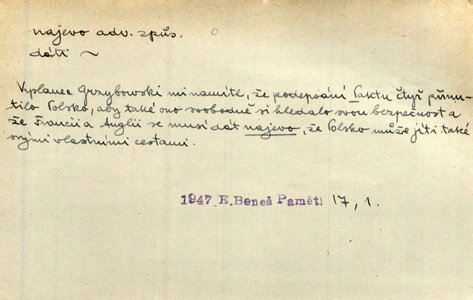 najevo adv. způs.
dáti ~
Vyslanec Grzybowski mi namítl, že podepsání Paktu čtyř přinu-
tilo Polsko, aby také ono svobodně si hledalo svou bezpečnost a
že Francii a Anglii se musí dát najevo, že Polsko může jíti také
svými vlastními cestami.
1947 E. Beneš Paměti 17, 1.